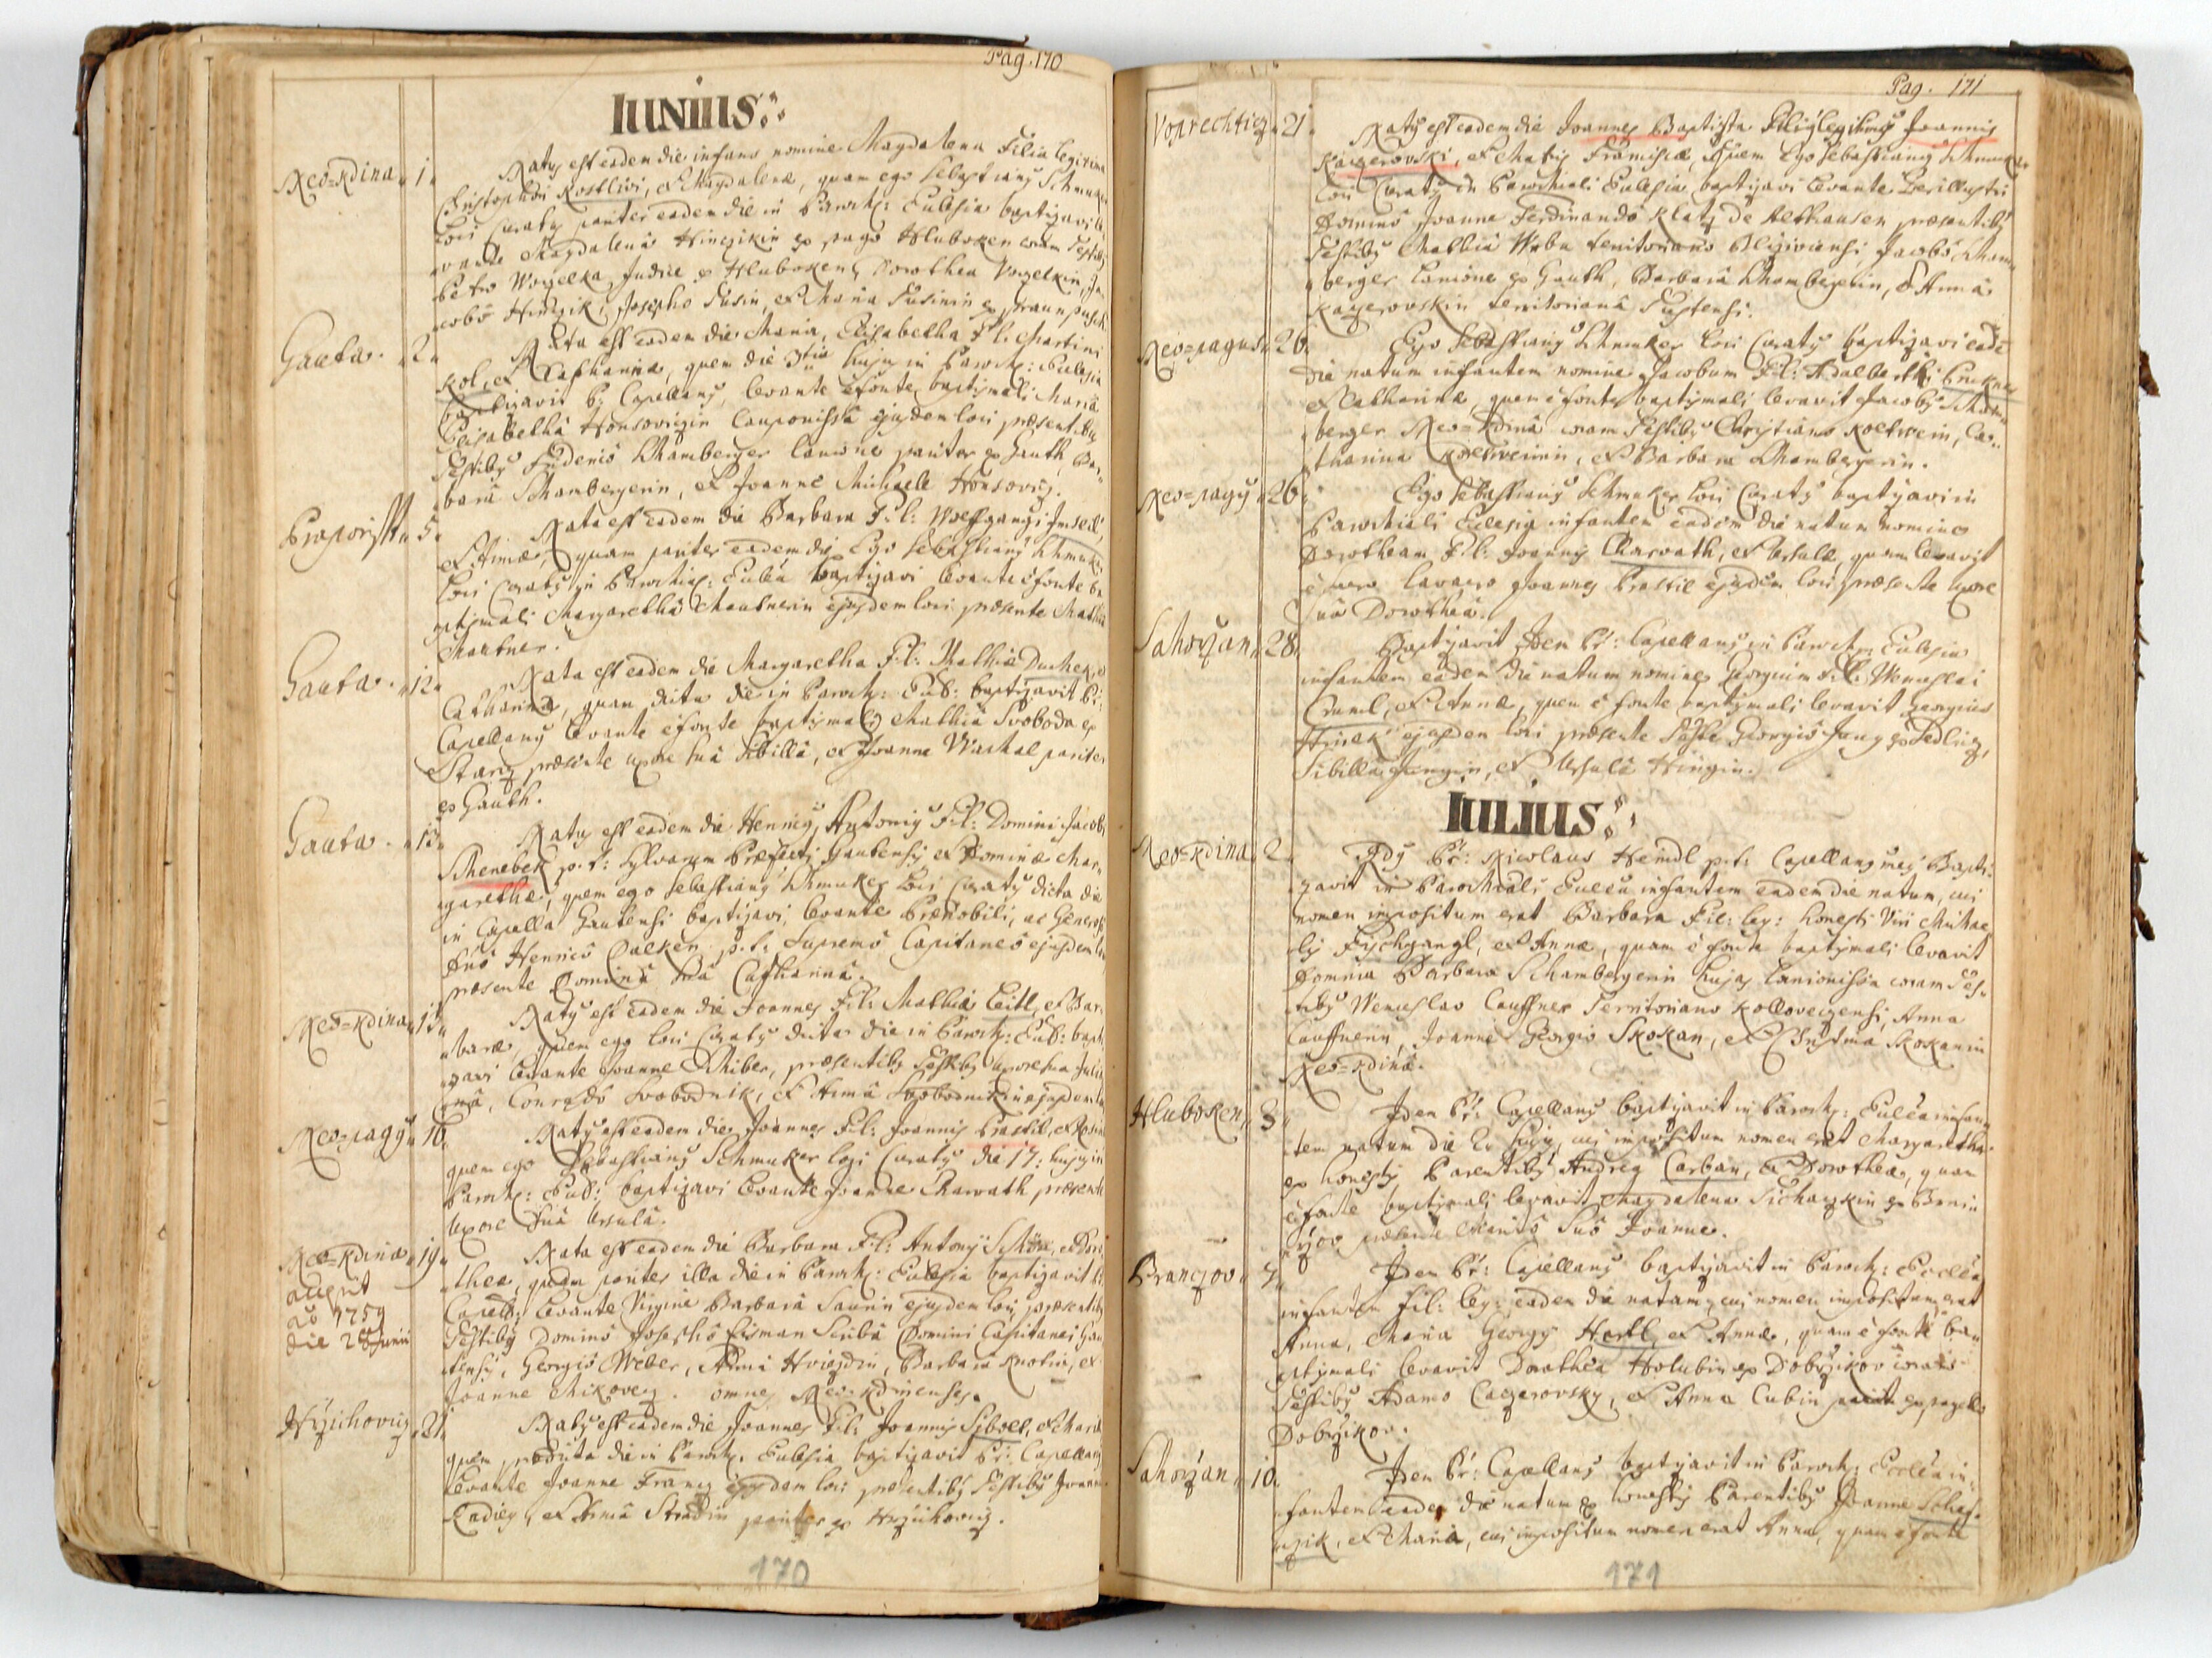 Pag. 170
IUNIUS:
Neo-Kdina 1.
Natus est eadem die infans nomine Magdalena Filia legitima
Christophori Kostliwi, et Magdalenæ, quam ego Sebastianus Schmuker
loci Curatus pariter eadem die in Paroch: Ecclesia baptizavi le-
vante Magdalena ex pago Hluboken coram Testibus
Petro Worzelka Judice ex Hluboken, Dorothea Worzelkin, Ja-
cobo Hinczik, Josepho Susin, et Maria Susinin ex
Gauta. 2.
Nata est eadem die Maria, Elisabetha F: l: Martini
Kol, et Catharinæ, quem die 3tia hujus in Paroch: Ecclesia
baptizavit P: Capellanus, levante e fonte baptismali Maria
Elisabetha Honsowiczin Cauponissa ejusdem loci præsentibus
Testibus Schamberger Lanione pariter ex Gauth, Bar-
bara Schambergerin, et Joanne Michaele Honsowicz.
5.
Nata est eadem die Barbara F: l: Wolffgangi
et Annæ, quam pariter eadem die Ego Sebastianus Schmuker
loci Curatus in Parochia: Ecclia baptizavi levante e fonte ba-
ptismali Margaretha Mautnerin ejusdem loci præsente Mathia
Mautner.
Gauta. 12.
Nata est eadem die Margaretha F: l: Mathiæ Duchek, et
Catharinæ, quam dicta die in Paroch: Eccl: baptizavit P:
Capellanus levante e fonte baptismali Mathia Svoboda ex
Stanz præsente uxore sua Sibilla, et Joanne Wachal pariter
ex Gauth.
Gauta. 13.
Natus est eadem die Henricus, Antonius Fil: Domini Jacobi
Schenebek p. t: sylvarum Præfecti Gautensis et Dominæ Mar-
garethæ, quem ego Sebastianus Schmuker loci Curatus dicta die
in Capella Gautensi baptizavi, levante Prænobili, ac Generoso
Dno Henrico p. t: Supremo Capitaneo ejusdem loci,
præsente Domina sua Catharina.
Neo-Kdina 15.
Natus est eadem die Joannes F: l: Mathiæ Leitl, et Bar-
baræ, quem ego loci Curatus dicta die in Paroch: Eccl: bapti-
zavi levante Joanne Schiber, præsentibus Testibus uxore sua Juli-
ana, Conrado Svobodnik, et Anna Svobodnikin ejusdem loci
Neo-pagus 16.
Natus est eadem die Joannes F: l: Joannis Prastil, et Rosinæ
quem ego Sebastianus Schmuker loci Curatus die 17: hujus in
Paroch: Eccl: baptizavi levante Joanne Charvath præsente
Uxore sua Ursula.
Neo-Kdina 19.
Nata est eadem die Barbara F: l: Antonii Schön, et Doro-
theæ, quam pariter illa die in Paroch: Ecclesia baptizavit P:
Capell: levante Virgine Barbara Saurin ejusdem loci, præsentibus
Testibus Domino Josepho Eisman Scriba Domini Capitanei Gau-
tensis, Georgio Weber, Anna Hviezdin, Barbara Knotin, et
Joanne Mikovecz. omnes Neo-Kdinenses.
1759
die 28 Junii
Hrzichowicz 21.
Natus est eadem die Joannes F: l: Joannis Siboll, et Mariæ
quem prædicta die in Paroch: Ecclesia baptizavit P: Capellanus
levante Joanne Francz ejusdem loci præsentibus Testibus Joanne
Kadiey, et Anna Stradin pariter ex Hrzichowicz.
170
Pag. 171
21.
Natus est eadem die Joannes Baptista Filius legitimus Joannis
Kaczerovski, et Matris Franciscæ, Quem Ego Sebastianus Schmuker
loci Curatus in Parochiali Ecclesia baptizavi levante Perillustri
Domino Joanne Ferdinando Klatz de Althausen præsentibus
Testibus Mathia Wrba territoriano Jacobo Scham-
berger Lanione ex Gauth, Barbara Schambergerin, et Anna
Kaczerovskin territoriana
Neo-pagus 26.
Ego Sebastianus Schmuker loci Curatus baptizavi eadem
die natum infantem nomine Jacobum F: l: Adalberti
et Catharinæ, quem e fonte baptismali levavit Jacobus Scham-
berger Neo-Kdina coram Testibus Christiano Koetwein, Ca-
tharina Koetweinin, et Barbara Schambergerin.
Neo-pagus 26.
Ego Sebastianus Schmuker loci Curatus baptizavi in
Parochiali Ecclesia infantem eadem die natum nomine
Dorotheam F: l: Joannis Charvath, et Ursulæ, quam levavit
e sacro lavacro Joannes Prastil ejusdem loci præsente uxore
sua Dorothea.
Sahorzan 28.
Baptizavit Idem P: Capellanus in Paroch: Ecclesia
infantem eadem die natum nomine Georgium F: l: Wenceslai
et Annæ, quem e fonte baptismali levavit Georgius
ejusdem loci præsente Teste Georgio Jung ex Sedlicz,
Sibilla Jungin, et Ursula
IULIUS:
Neo-Kdina 2.
Idem P: Nicolaus Heindl p. t: Capellanus meus Bapti-
zavit in Parochiali Ecclia infantem eadem die natum, cui
nomen impositum erat Barbara Fil: leg: honesti Viri Michae-
lis Fischgangl, et Annæ, quam e fonte baptismali levavit
Domina Barbara Schambergerin hujas Lanionissa coram Tes-
tibus Wenceslao Cauffner Territoriano Kolloveczensi, Anna
Cauffnerin, Joanne Georgio Skokan, et Christina Skokanin
Neo-Kdina.
Hluboken 3.
Idem P: Capellanus baptizavit in Paroch: Ecclia infan-
tem natum die 2. hujus, cui impositum nomen erat Margaretha
ex honestis Parentibus Andrea Carban, et Dorothea, quam
e fonte baptismali levavit Magdalena Sichaczkin ex Bran-
czov præsente Marito suo Joanne.
Branczov 7.
Idem P: Capellanus baptizavit in Paroch: Ecclia
infantem Fil: leg: eadem die natam, cui nomen impositum erat
Anna, Maria Georgii Hartl, et Annæ, quam e fonte ba-
ptismali levavit Dorothea Holubin ex Dobrzikov coram
Testibus Adamo Caczerovsky, et Anna Cubin pariter ex pago
Dobrzikov.
Sahorzan 10.
Idem P: Capellanus baptizavit in Paroch: Ecclia in-
fantem eadem die natum ex honestis Parentibus Joanne Schas-
czik, et Maria, cui impositum nomen erat Anna, quam e fonte
171